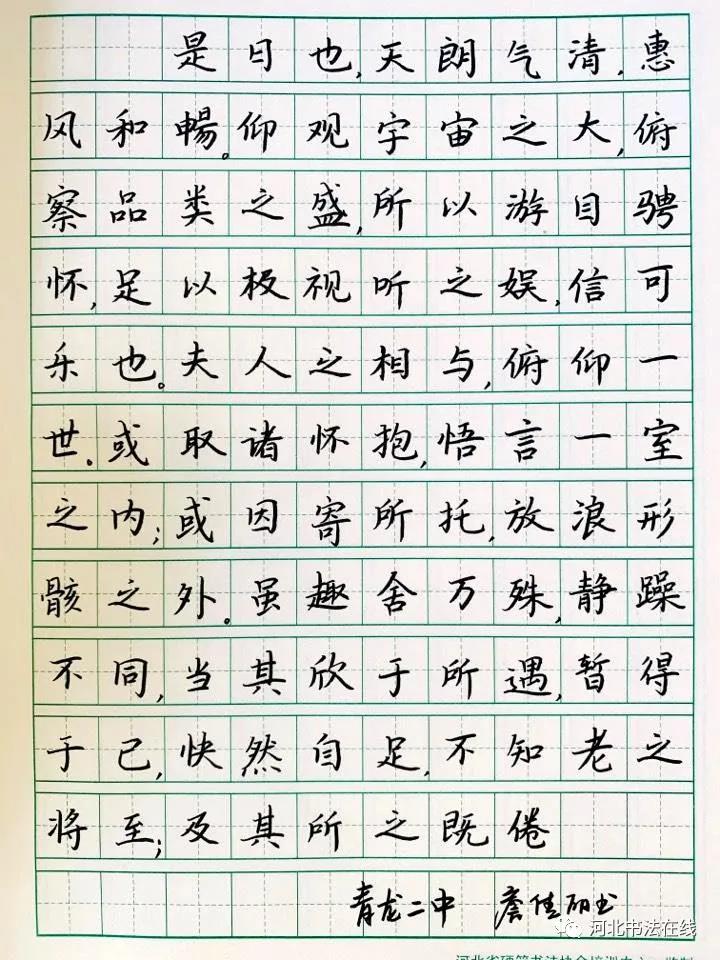 是日也,天朗气清,惠
风和暢。仰观宇宙之大,俯
察品类之盛,所以游目骋
怀,足以极视听之娱,信可
乐也。夫人之相与,俯仰一
世。或取诸怀抱,悟言一室
之内;或因寄所托,放浪形
骸之外。虽趣舍万殊,静躁
不同,当其欣于所遇,暂得
于己,快然自足,不知老之
将至;及其所之既倦
青龙二中 詹佳丽书
河北书法在线